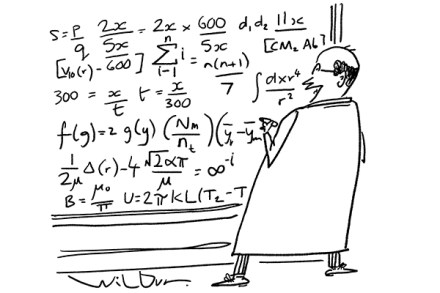 S = P/q 2x/5x = 2x × 600/5x d₁ d₂ 11x
[V₁₀(r) - 600] n Σ i=1 i = n(n+1)/7 [CM₂ Ab]
300 = x/t t = x/300 ∫ dxr⁴/r²
f(g) = 2 g(y) (Nm/nt) (ȳ, - ȳm
1/2μ Δ(r) - 4 √2απ/μ = ∞⁻ⁱ
B = μ₀/π U = 2πKL(T₂ - T
Wilbur